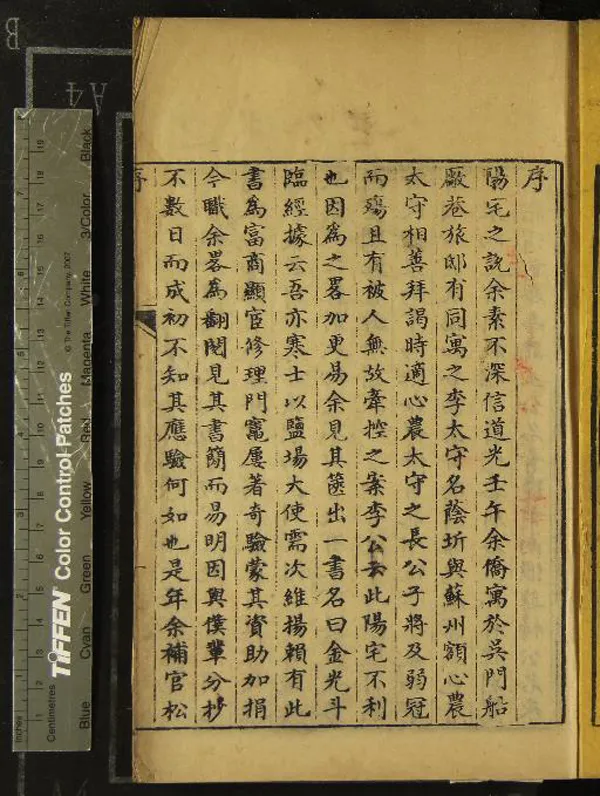 序
陽宅之說余素不深信道光壬午余僑寓於吳門船
廠巷旅邸有同寓之李太守名蔭圻與蘇州額心農
太守相善拜謁時適心農太守之長公子將及弱冠
而殤且有被人無故牽控之案李公云此陽宅不利
也因爲之畧加更易余見其篋出一書名曰金光斗
臨經據云吾亦寒士以鹽場大使需次維揚賴有此
書爲富商顯宦修理門竈屢著奇驗蒙其資助加捐
今職余畧爲翻閱見其書簡而易明因與僕輩分抄
不數日而成初不知其應驗何如也是年余補官松
序
B
A4
Inches
Centimetres
TIFFEN Color Control Patches
© The Tiffen Company, 2007
Blue Cyan Green Yellow Red Magenta White 3/Color Black